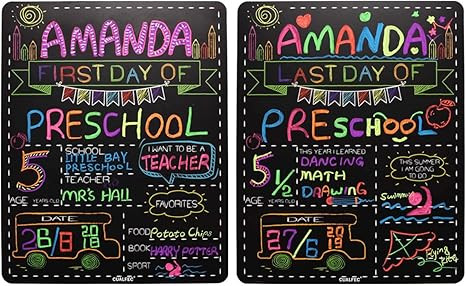 AMANDA
FIRST DAY OF
PRESCHOOL
5
AGE
YEARS OLD
SCHOOL
LITTLE BAY
PRESCHOOL
TEACHER
MR'S HALL
I WANT TO BE A
TEACHER
DATE
26/8 2018
FAVORITES
FOOD Potato Chips
BOOK HARRY POTTER
SPORT
CUALFEC
AMANDA
LAST DAY OF
PRESCHOOL
5 1/2
AGE
YEARS OLD
THIS YEAR I LEARNED
DANCING
MATH
DRAWING
THIS SUMMER
I AM GOING
TO DO
Swimming
DATE
27/6 2019
Flying
Kite
CUALFEC